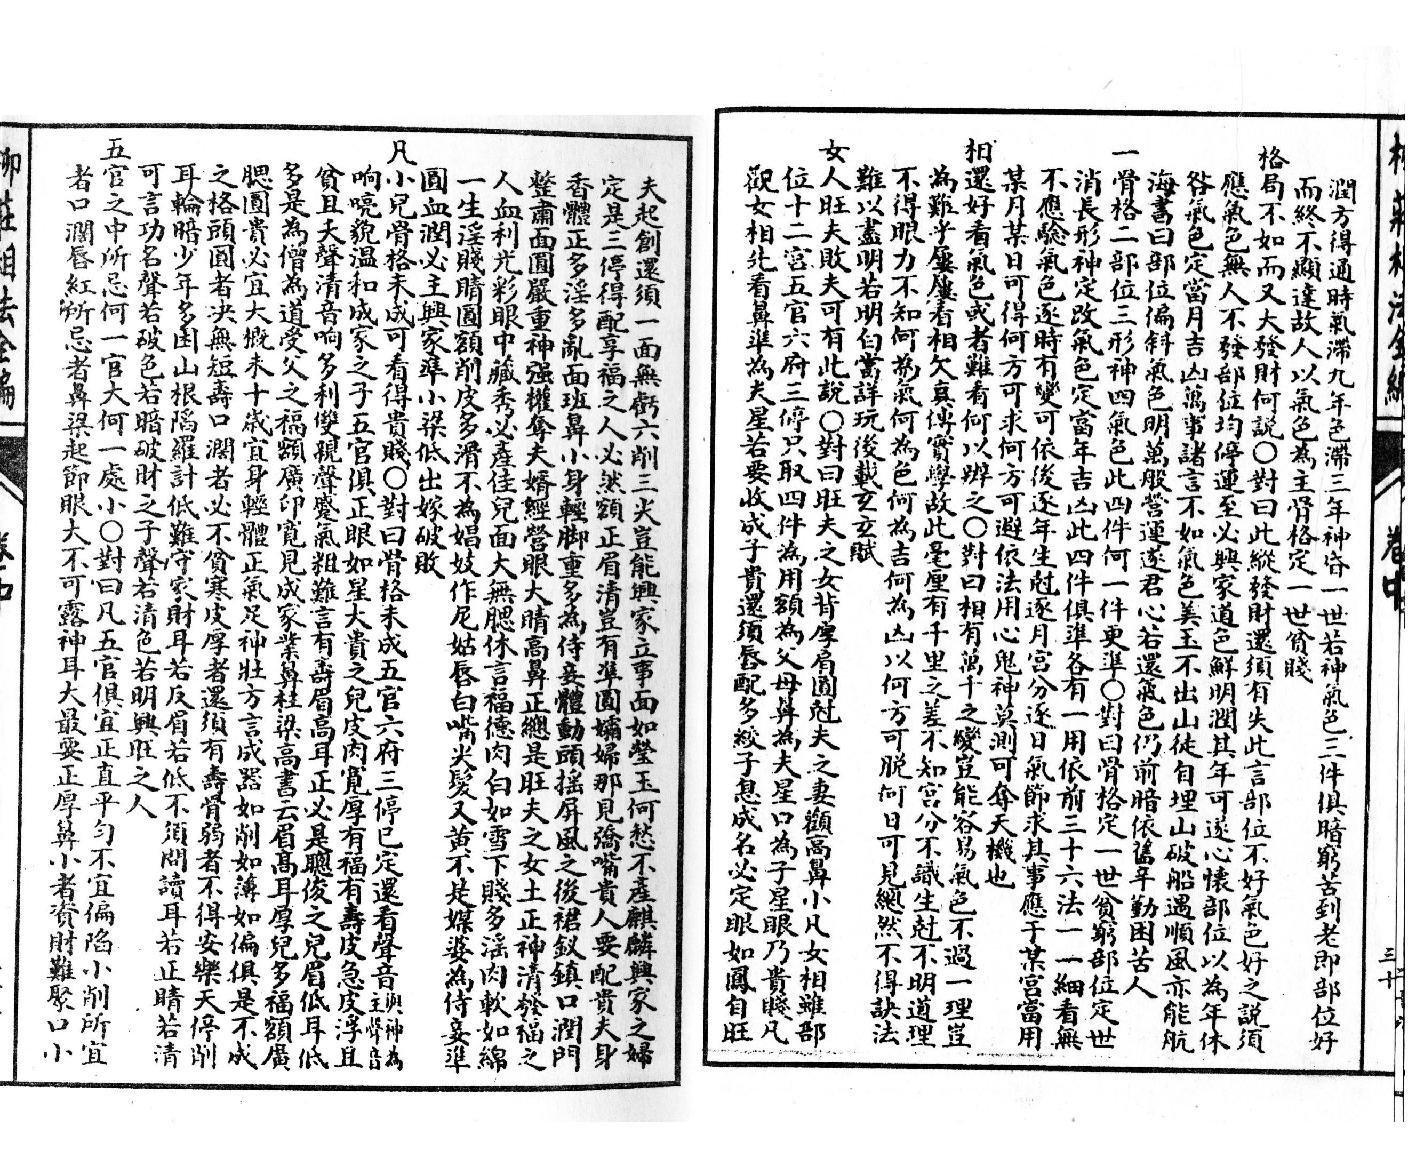 柳莊相法全編
卷中
三十
潤方得通時氣滯九年色滯三年神昏一世若神氣色三件俱暗窮苦到老即部位好
而終不顯達故人以氣色為主骨格定一世貧賤
格局不如而又大發財何說〇對曰此縱發財還須有失此言部位不好氣色好之說須
應氣色無人不發部位均停運至必興家道色鮮明潤其年可遂心懷部位以為年休
咎氣色定當月吉凶萬事諸言不如氣色美玉不出山徒自埋山破船遇順風亦能航
海書曰部位偏斜氣色明萬般營運遂君心若還氣色仍前暗依舊辛勤困苦人
一骨格二部位三形神四氣色此四件何一件更準〇對曰骨格定一世貧窮部位定世
消長形神定改氣色定當年吉凶此四件俱準各有一用依前三十六法一一細看無
不應驗氣色逐時有變可依後逐年生尅逐月宮分逐日氣節求其事應于某宮當用
某月某日可得何方可求何方可避依法用心鬼神莫測可奪天機也
相還好看氣色或者難看何以辨之〇對曰相有萬千之變豈能容易氣色不過一理豈
為難乎屢屢看相欠真傳實學故此毫厘有千里之差不知宮分不識生尅不明道理
不得眼力不知何為氣何為色何為吉何為凶以何方可脫何日可見總然不得訣法
難以盡明若明白當詳玩後載玄玄賦
女人旺夫敗夫可有此說〇對曰旺夫之女背厚肩圓尅夫之妻顴高鼻小凡女相雖部
位十二宮五官六府三停只取四件為用額為父母鼻為夫星口為子星眼乃貴賤凡
觀女相先看鼻準為夫星若要收成子貴還須唇配多紋子息成名必定眼如鳳自旺
夫起創還須一面無虧六削三尖豈能興家立事面如瑩玉何愁不產麒麟興家之婦
定是三停得配享福之人必然額正眉清豈有準圓孀婦那見喬嘴貴人要配貴夫身
香體正多淫多亂面班鼻小身輕脚重多為侍妾體動頭搖屏風之後裙釵鎮口潤門
整肅面圓嚴重神强權奪夫婿經營眼大睛高鼻正總是旺夫之女土正神清發福之
人血利光彩眼中藏秀必產佳兒面大無腮休言福德肉白如雪下賤多淫肉軟如綿
一生淫賤睛圓額削皮多滑不為娼妓作尼姑唇白嘴尖髮又黃不是媒婆為侍妾準
圓血潤必主興家準小梁低出嫁破敗
凡小兒骨格未成可看得貴賤〇對曰骨格未成五官六府三停已定還看聲音與神為主聲音
响喨貌溫和成家之子五官俱正眼如星大貴之兒皮肉寬厚有福有壽皮急皮浮且
貧且夭聲清音响多利雙親聲蹇氣粗難言有壽眉高耳正必是聰俊之兒眉低耳低
多是為僧為道受父之福額廣印寬見成家業鼻柱梁高書云眉高耳厚兒多福額廣
腮圓貴必宜大概未十歲宜身輕體正氣足神壯方言成器如削如薄如偏俱是不成
之格頭圓者決無短壽口潤者必不貧寒皮厚者還須有壽骨弱者不得安樂天停削
耳輪暗少年多困山根陷羅計低難守家財耳若反眉若低不須問讀耳若正睛若清
可言功名聲若破色若暗破財之子聲若清色若明興旺之人
五官之中所忌何一官大何一處小〇對曰凡五官俱宜正直平勻不宜偏陷小削所宜
者口潤唇紅所忌者鼻梁起節眼大不可露神耳大最要正厚鼻小者資財難聚口小
柳莊相法全編
卷中